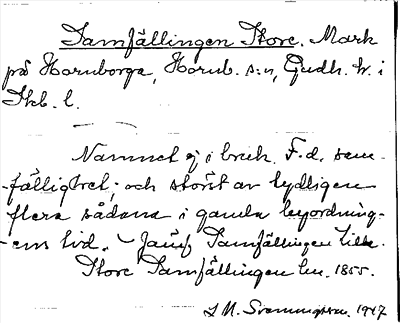 Samfällingen Store. Mark
på Hornborga, Hornb. s:n, Gudh. hr. i
Skb. l.
Namnet ej i bruk. F.d. sam-
-fällighet; och störst av tydligen
flera sådana i gamla byordning-
-ens tid. – Jämf Samfällingen Lilla.
Store Samfällingen lm. 1855.
S M. 1947